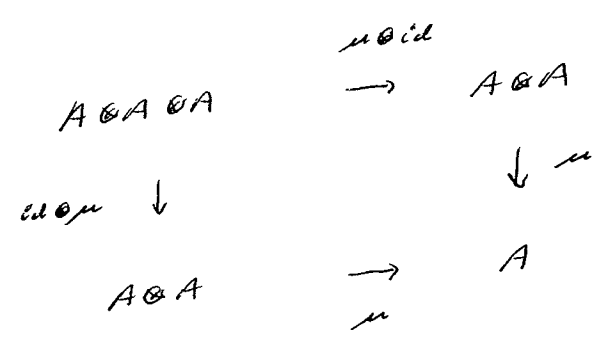 μ⊗id
A⊗A⊗A → A⊗A
id⊗μ ↓ ↓ μ
A⊗A → A
μ